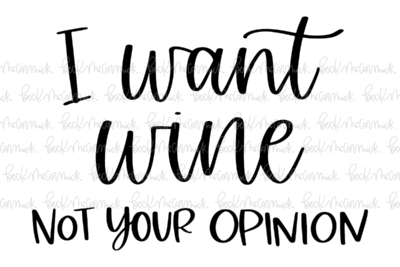 I want
wine
NOT YOUR OPINION